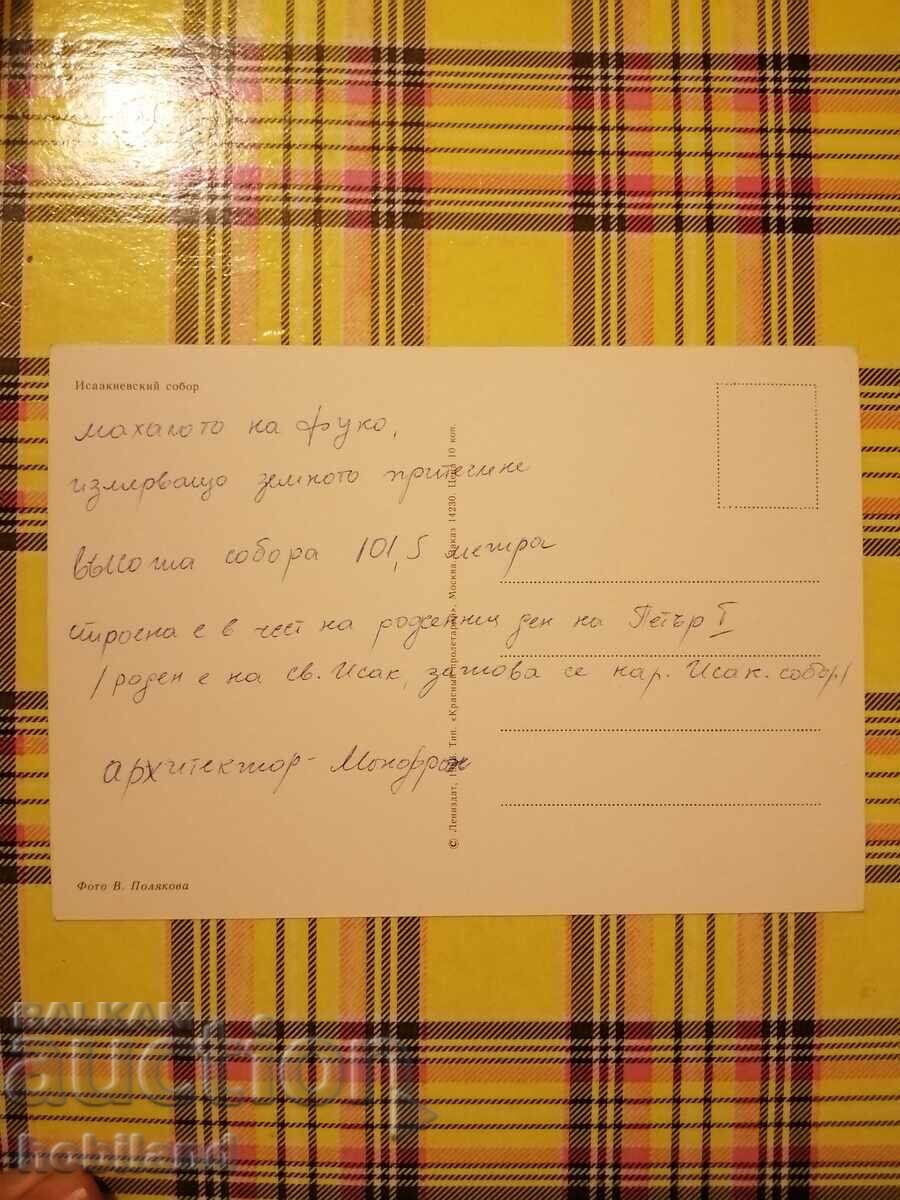 Исаакиевский собор
махалото на Фуко,
измерващо земното притегляне
височина собора 101,5 метра
строена е в чест на рождения ден на Петър I
/роден е на св. Исак, затова се нар. Исак. собор/
архитектор - Монфран
Фото В. Полякова
© Лениздат, Тип. «Красный пролетарий», Москва. Заказ 14230. Цена 10 коп.
BALKAN
auction
hobiland